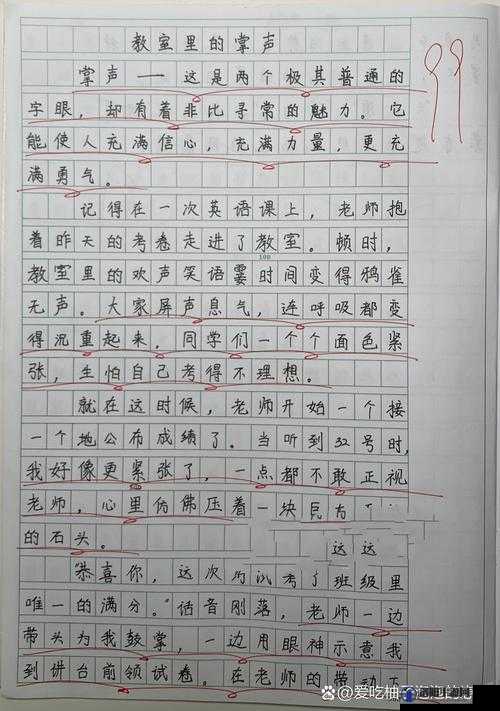 教室里的掌声
99
掌声——这是两个极其普通的
字眼，却有着非比寻常的魅力。它
能使人充满信心，充满力量，更充
满勇气。
记得在一次英语课上，老师抱
着昨天的考卷走进了教室。顿时，
100
教室里的欢声笑语霎时间变得鸦雀
无声。大家屏声息气，连呼吸都变
得沉重起来，同学们一个个面色紧
张，生怕自己考得不理想。
就在这时候，老师开始一个接
一个地公布成绩了。当听到32号时，
我好像更紧张了，一点都不敢正视
老师，心里仿佛压着一块
的石头。
这这
"恭喜你，这次 考了班级里
唯一的满分。"话音刚落，老师一边
带头为我鼓掌，一边用眼神示意我
到讲台前领试卷。在老师的带动下
头条 @爱吃柚子